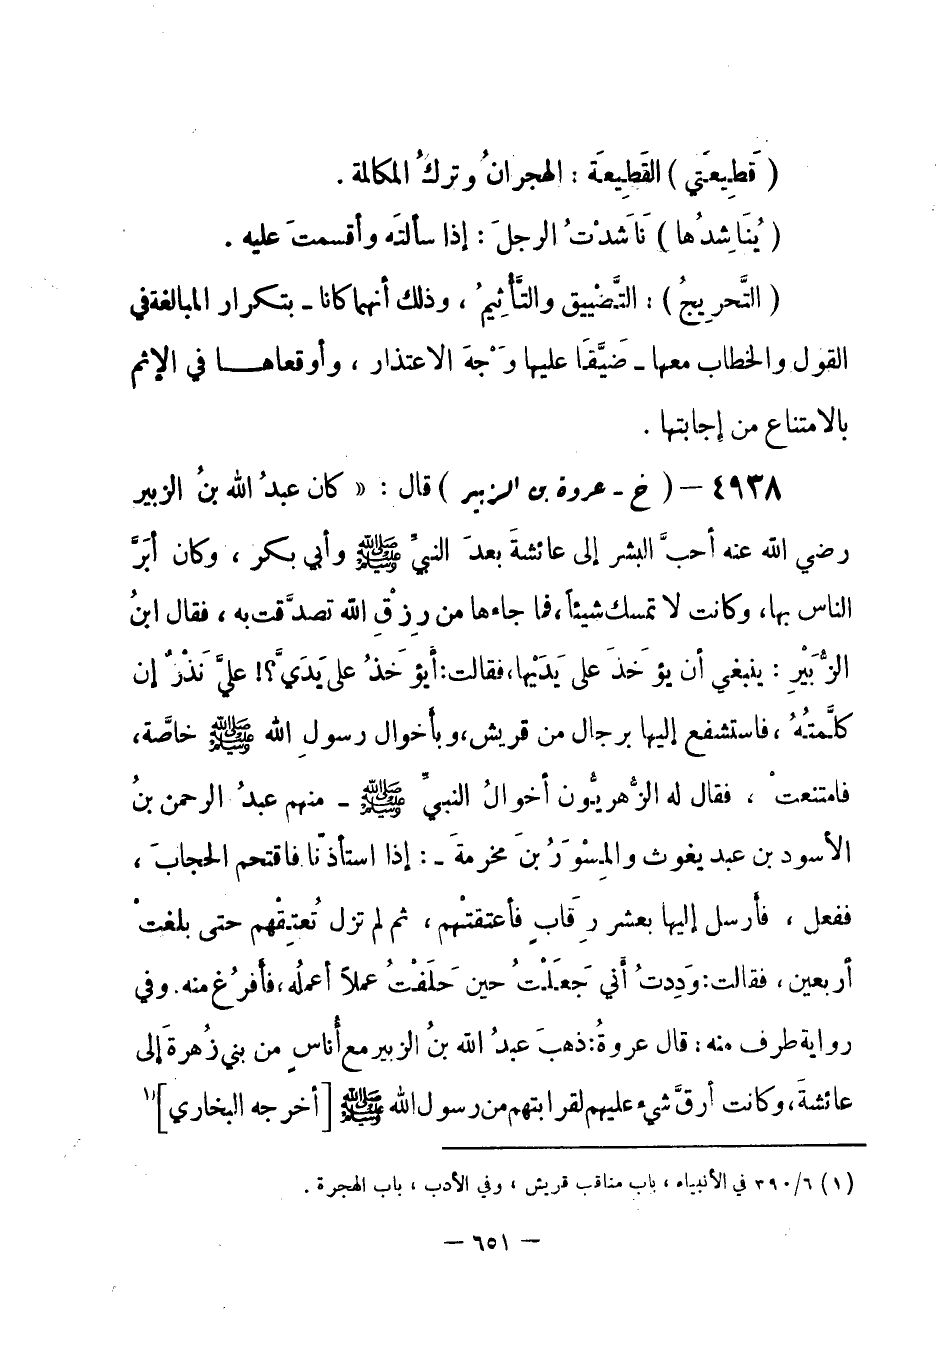 ( قَطِيعَتي ) القَطِيعَة : الهجرانُ وتركُ المكالمة .
( يُنَاشِدُها ) نَاشَدْتُ الرجلَ : إذا سألتَه وأقسمتَ عليه .
( التَّحرِيجُ ) : التَّضْييق والتَّأثِيمُ ، وذلك أنهما كانا ـ بتكرار المبالغة في
القول والخطاب معها ـ ضَيَّقَا عليها وَجْهَ الاعتذار ، وأوقعاهـــا في الإثم
بالامتناع من إجابتها .
٤٩٣٨ – ( خ ـ عروة بن الزبير ) قال : « كان عبدُ الله بنُ الزبير
رضي الله عنه أحبَّ البشر إلى عائشةَ بعدَ النبيِّ ﷺ وأبي بكر ، وكان أبَرَّ
الناس بها، وكانت لا تمسك شيئاً، فما جاءها من رِزْقِ الله تصدَّقت به ، فقال ابنُ
الزُّبَيْرِ : ينبغي أن يؤخَذَ على يَدَيْها، فقالت: أيؤخَذُ على يَدَيَّ؟! عليَّ نَذْرٌ إن
كلَّمتُهُ ، فاستشفع إليها برجال من قريش، وبأخوال رسولِ الله ﷺ خاصَّة،
فامتنعتْ ، فقال له الزُّهريُّون أخوالُ النبيِّ ﷺ ـ منهم عبدُ الرحمن بنُ
الأسود بن عبد يغوث والمِسْوَرُ بنَ مخرمةَ ـ : إذا استأذنّا فاقتحم الحجابَ ،
ففعل ، فأرسل إليها بعشر رِقَابٍ فأعتقتْهم ، ثم لم تزل تُعتِقْهم حتى بلغتْ
أربعين ، فقالت: وَدِدتُ أني جَعَلْتُ حين حَلَفْتُ عملاً أعملُه، فأفرُغ منه. وفي
رواية طرف منه : قال عروةُ: ذهبَ عبدُ الله بنُ الزبير مع أُناسٍ من بني زُهرةَ إلى
عائشةَ، وكانت أرقَّ شيء عليهم لقرابتهم من رسول الله ﷺ [أخرجه البخاري]⁽¹⁾
(١) ٣٩٠/٦ في الأنبياء ، باب مناقب قريش ، وفي الأدب ، باب الهجرة .
– ٦٥١ –